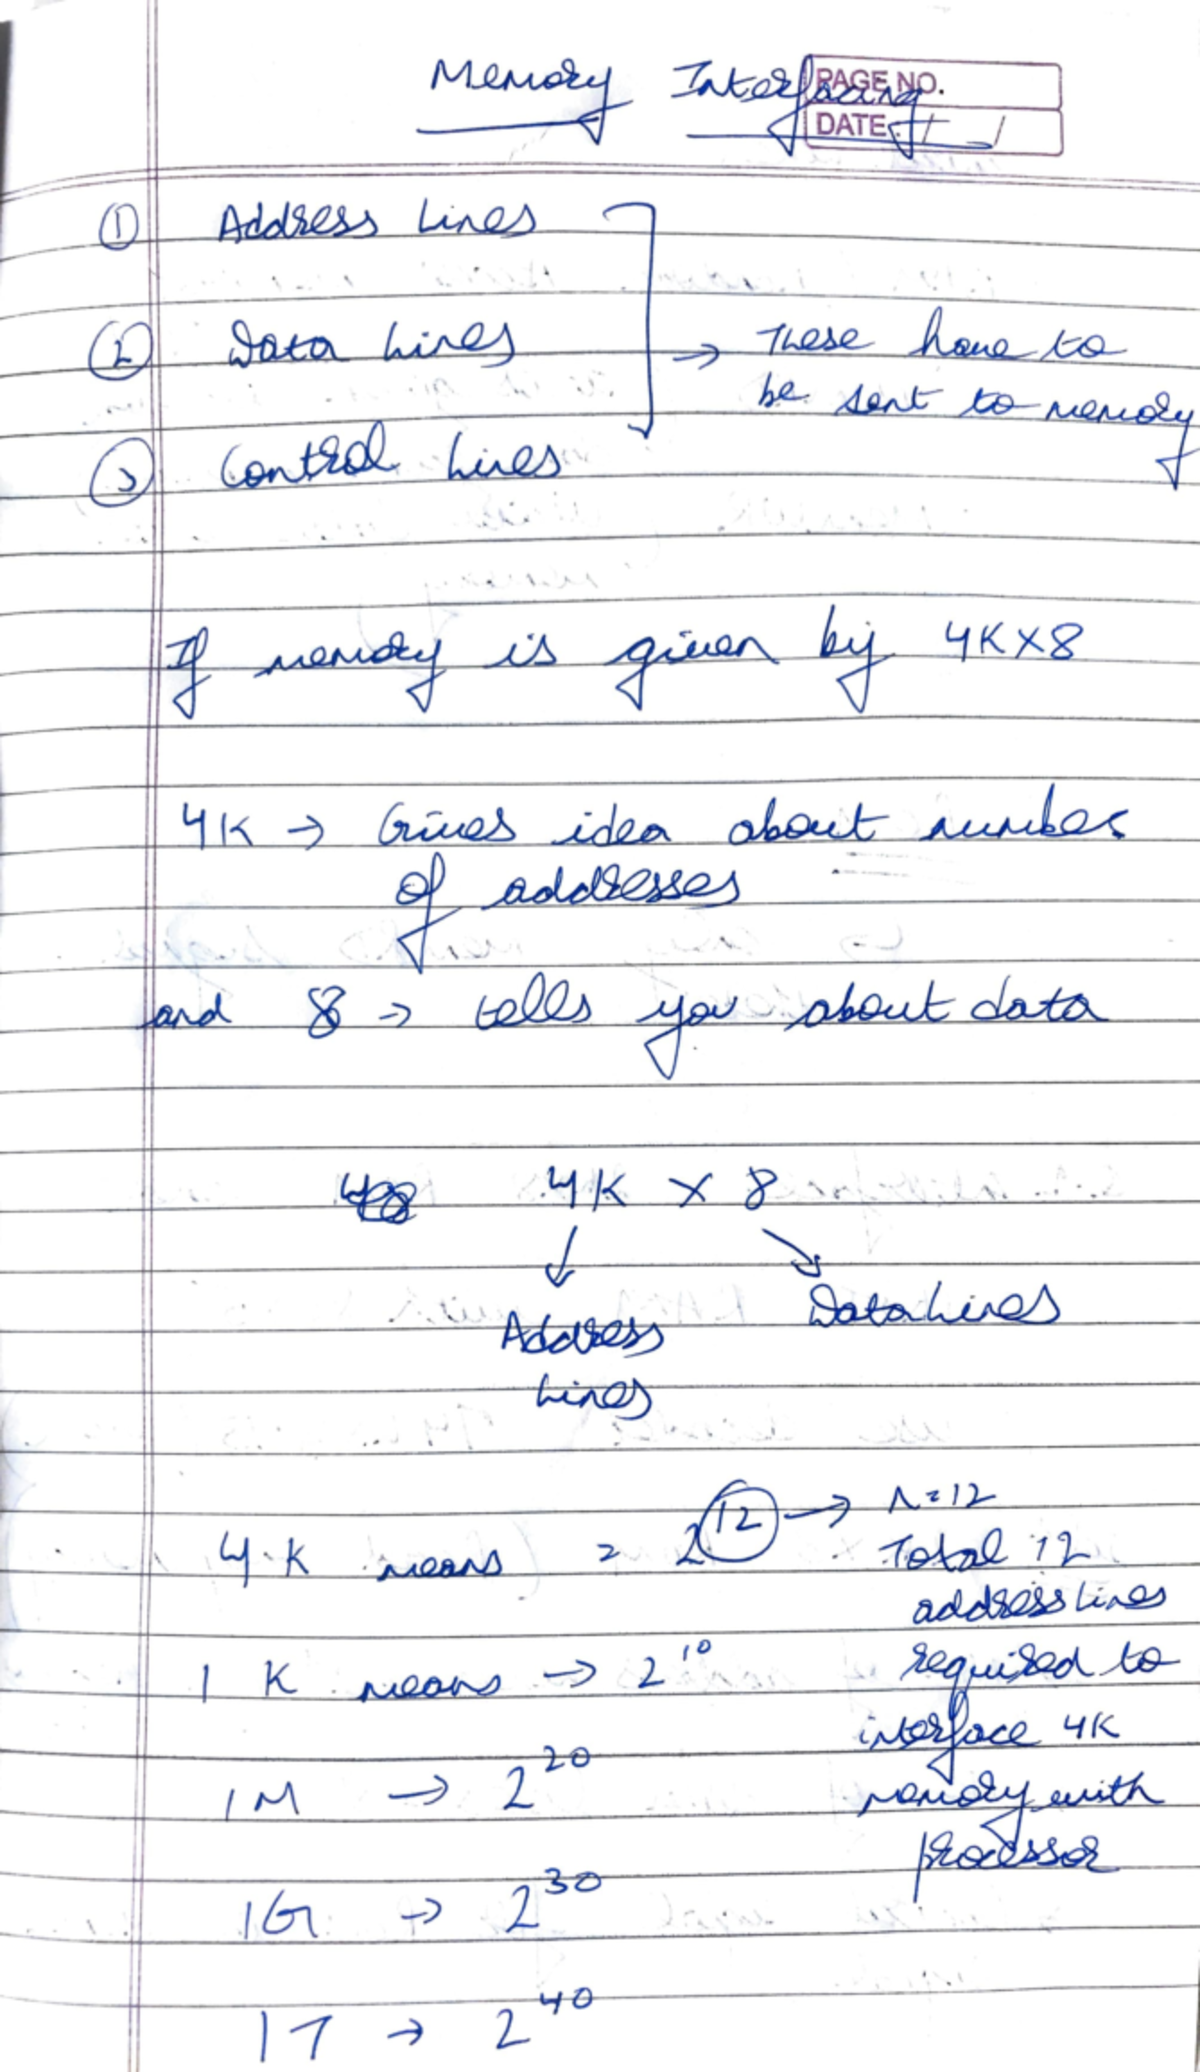 Memory Interfacing
PAGE NO.
DATE: / /
① Address Lines
② Data Lines → These have to
be sent to memory
③ Control Lines
If memory is given by 4K×8
4K → Gives idea about number
of addresses
and 8 → tells you about data
4K × 8
Address Data Lines
Lines
4K means = 2^12 → n=12
Total 12
address Lines
1 K means → 2^10 required to
interface 4K
1M → 2^20 memory with
processor
1G → 2^30
1T → 2^40